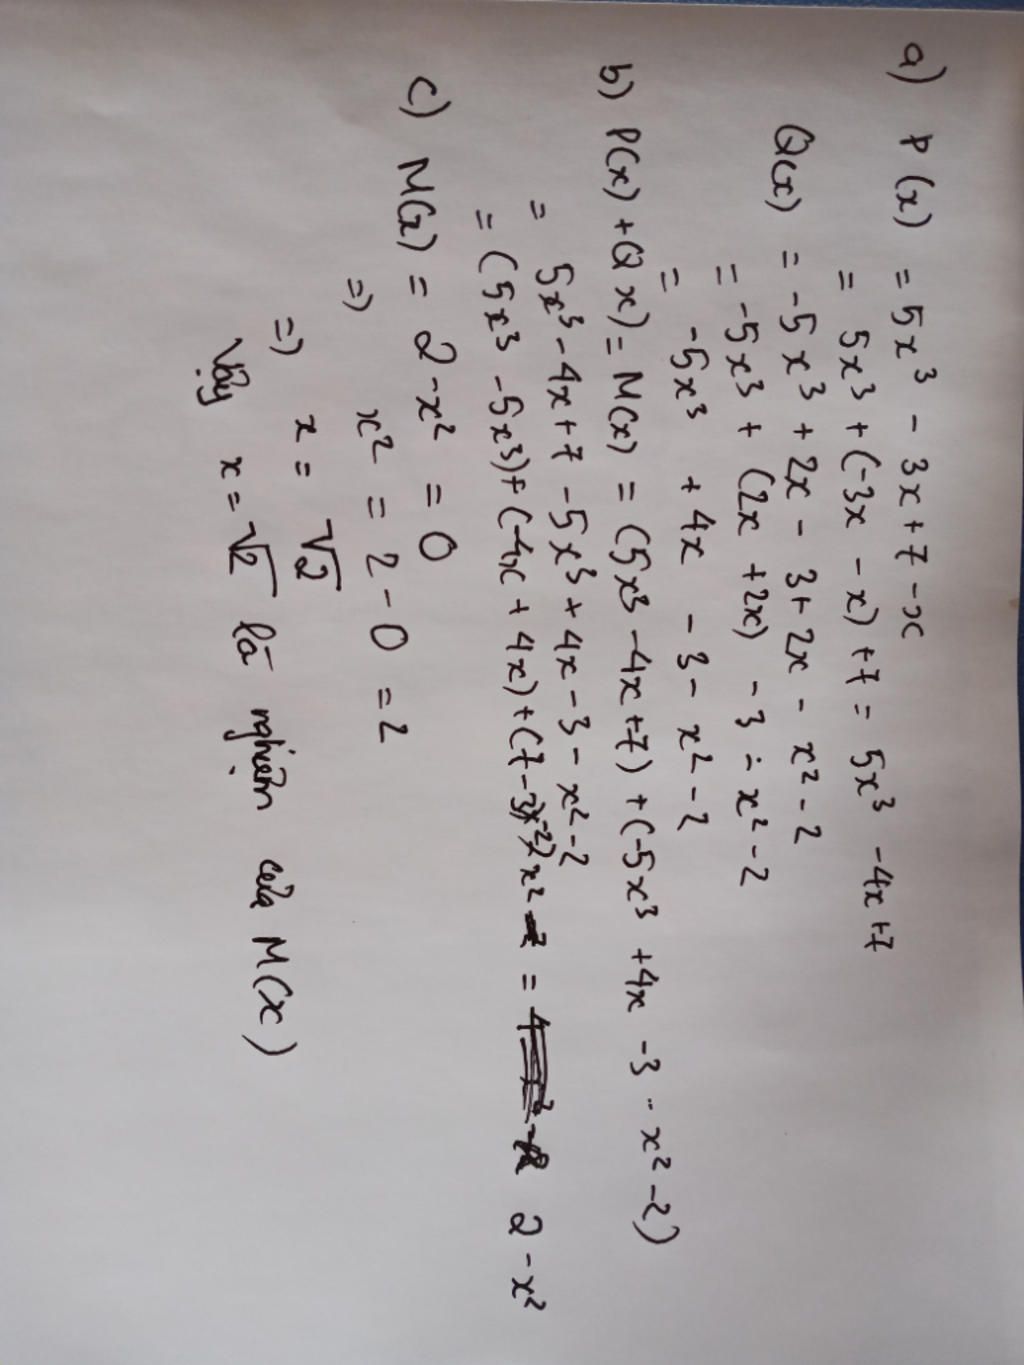 a) P(x) = 5x³ - 3x + 7 - x
= 5x³ + (-3x - x) + 7 = 5x³ - 4x + 7
Q(x) = -5x³ + 2x - 3 + 2x - x² - 2
= -5x³ + (2x + 2x) - 3 - x² - 2
= -5x³ + 4x - 3 - x² - 2
b) P(x) + Q x) = M(x) = (5x³ - 4x + 7) + (-5x³ + 4x - 3 - x² - 2)
= 5x³ - 4x + 7 - 5x³ + 4x - 3 - x² - 2
= (5x³ - 5x³) + (-4x + 4x) + (7 - 3 - 2) x² = 2 - x²
c) M(x) = 2 - x² = 0
=) x² = 2 - 0 = 2
=) x = √2
Vậy x = √2 là nghiệm của M(x)